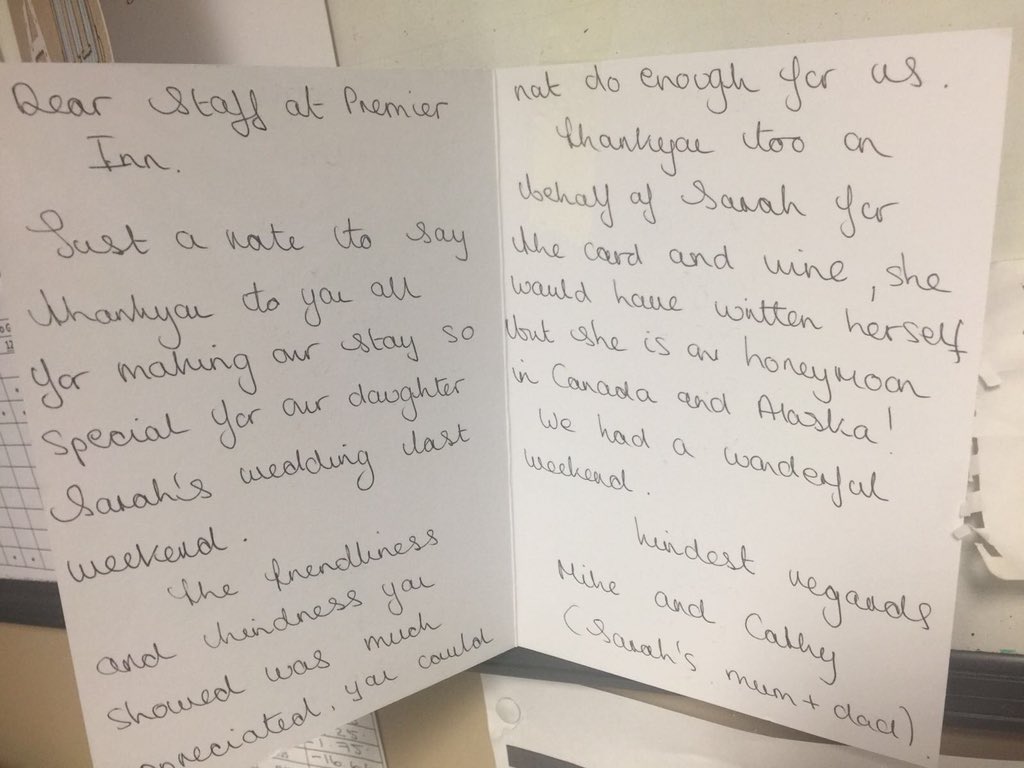 Dear Staff at Premier
Inn.
Just a note to say
thankyou to you all
for making our stay so
special for our daughter
Sarah's wedding last
weekend.
The friendliness
and kindness you
showed was much
appreciated, you could
not do enough for us.
Thankyou too on
behalf of Sarah for
the card and wine, she
would have written herself
but she is on honeymoon
in Canada and Alaska!
We had a wonderful
weekend.
Kindest regards
Mike and Cathy
(Sarah's mum + dad)